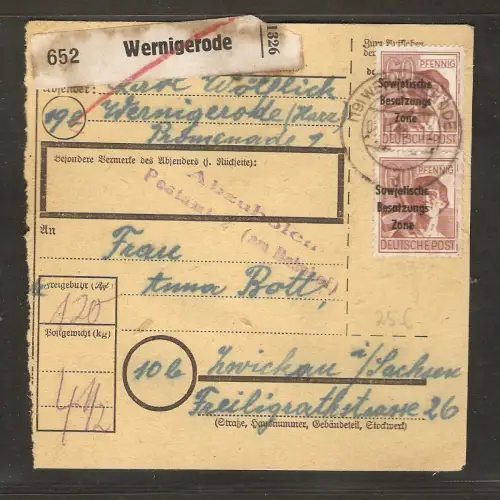 652 Wernigerode 1326
Absender:
Wernigerode (Harz)
19b
Promenade 1
Besondere Vermerke des Absenders (s. Rückseite):
Abzuholen
Postamt (am Bahnhof)
An
Frau
Anna Bott,
Freigebühr (Rpf)
120
Postgewicht (kg)
4 1/2
10b Zwickau i/Sachsen
Freiligrathstrasse 26
(Straße, Hausnummer, Gebäudeteil, Stockwerk)
PFENNIG
Sowjetische
Besatzungs
Zone
DEUTSCHE POST
PFENNIG
Sowjetische
Besatzungs
Zone
DEUTSCHE POST
25.6